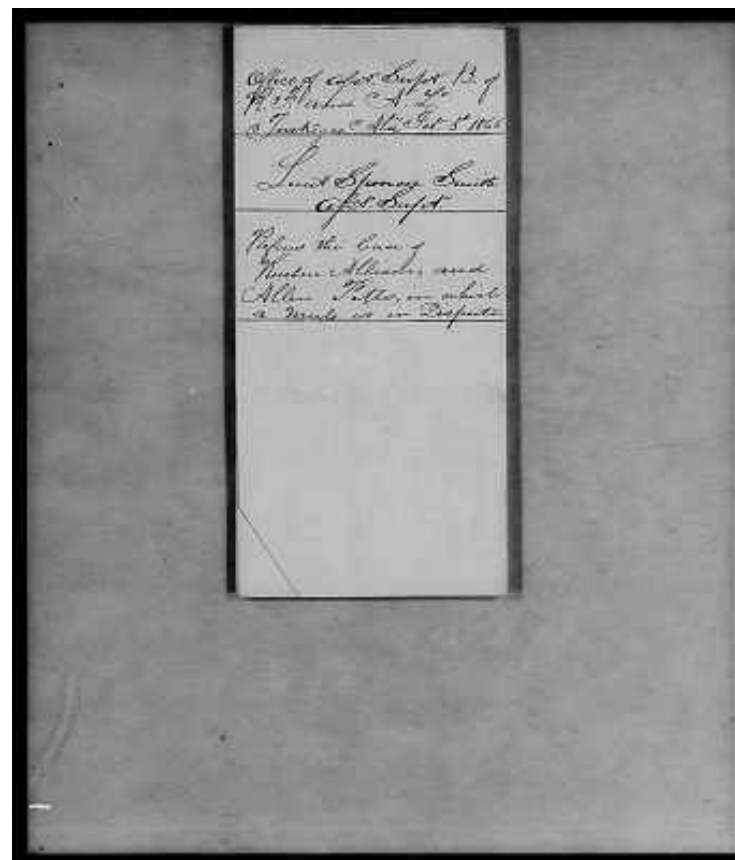 Office of Asst Supt B. of
R. F. and A. L.
Tuskegee Ala Feb 8th 1866
Lieut Spencer Smith
Asst Supt
Refers the Case of
Allison and
Allen in which
a Mule is in Dispute